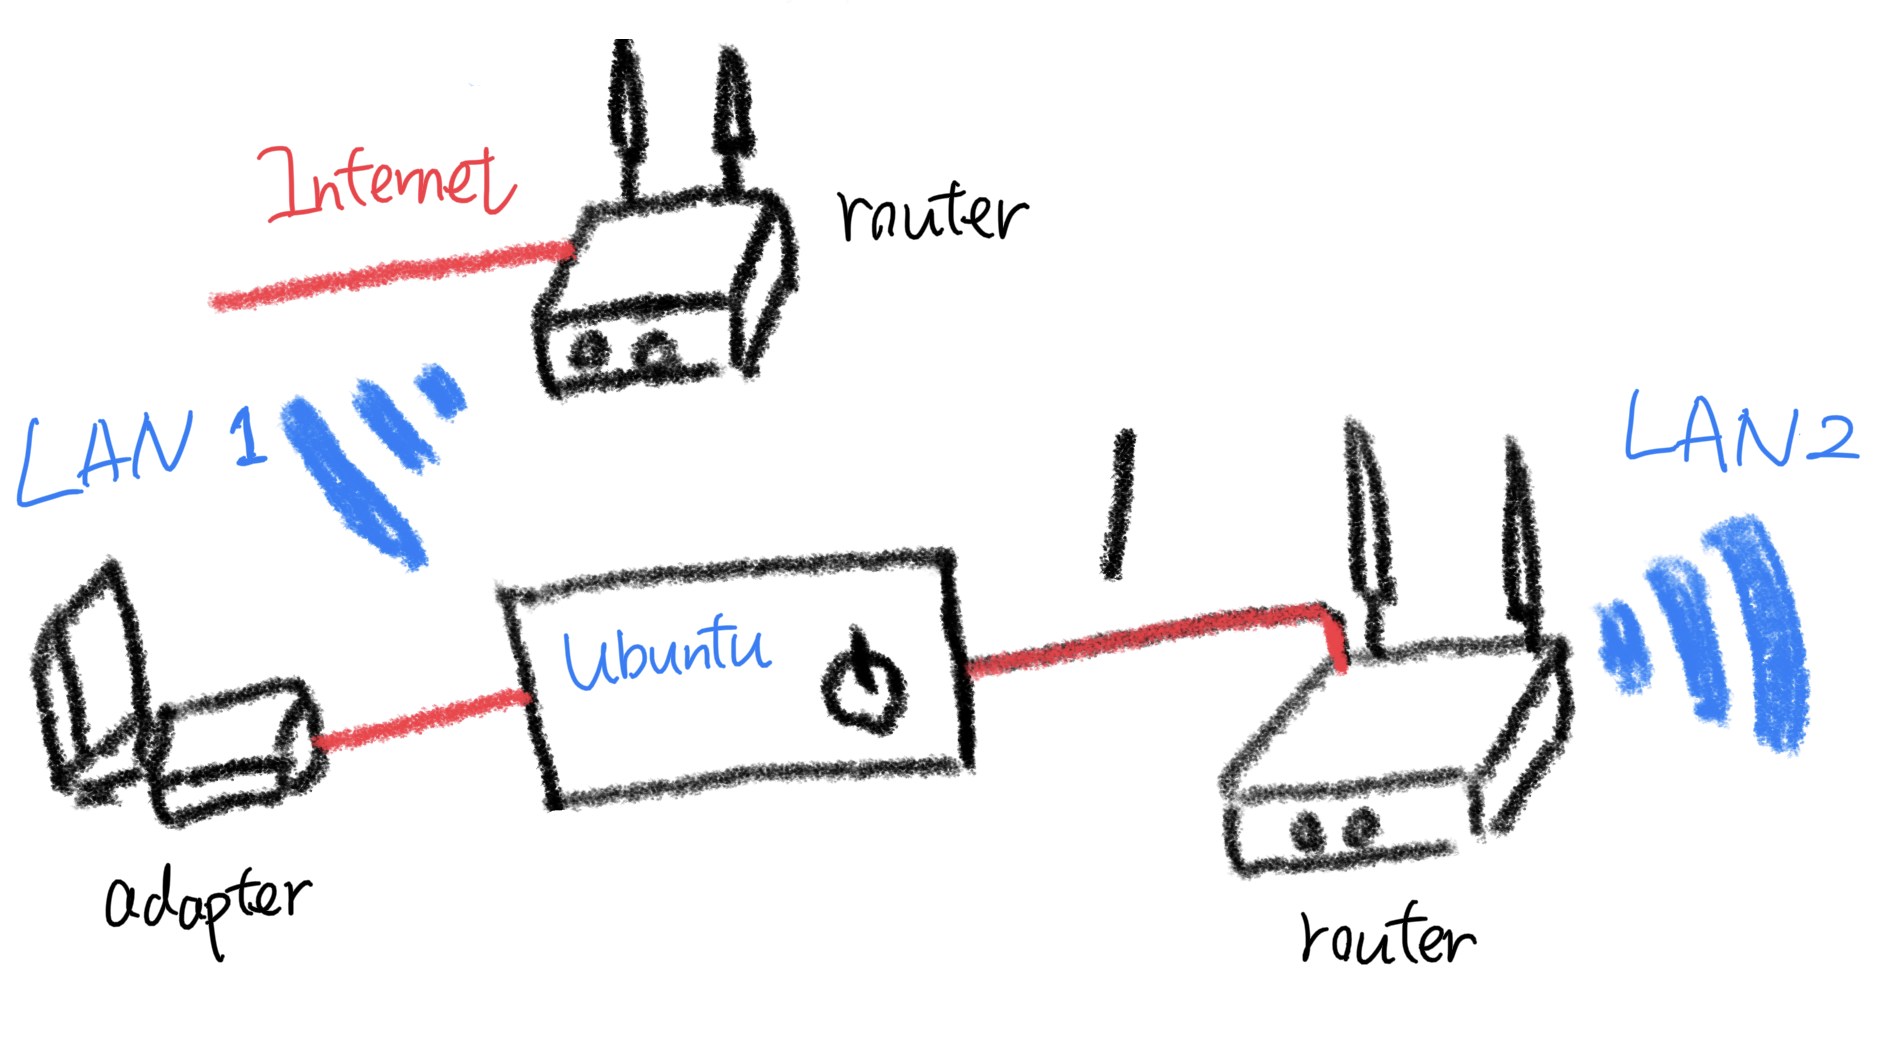 Internet
router
LAN 1
LAN2
Ubuntu
adapter
router